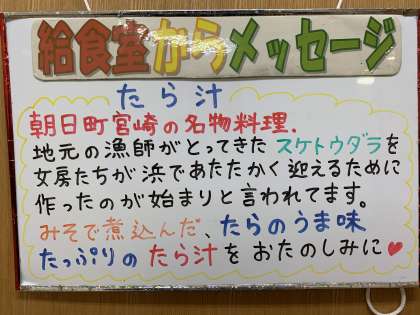 給食室からメッセージ
たら汁
朝日町宮崎の名物料理.
地元の漁師がとってきたスケトウダラを
女房たちが浜であたたかく迎えるために
作ったのが始まりと言われてます。
みそで煮込んだ、たらのうま味
たっぷりのたら汁をおたのしみに♥